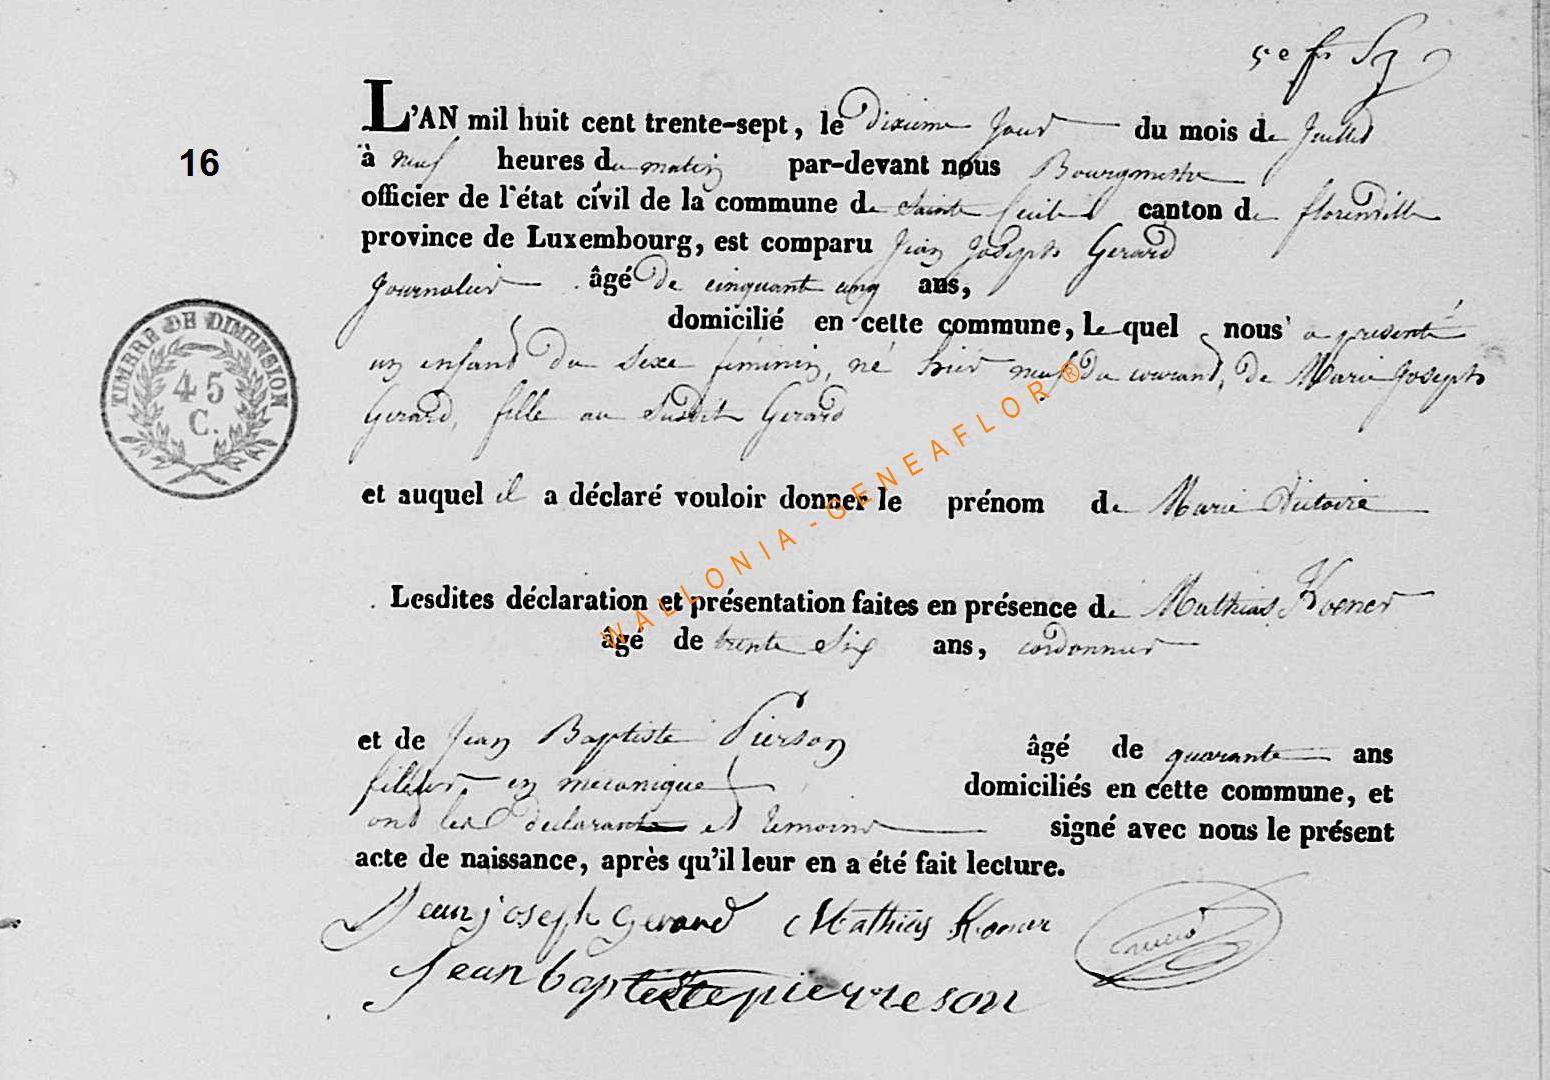 L'AN mil huit cent trente-sept, le dixième jour du mois de Juillet
16
à neuf heures du matin par-devant nous Bourgmestre
officier de l'état civil de la commune de Sainte Cécile canton de florenville
province de Luxembourg, est comparu Jean Joseph Gerard
Journalier âgé de cinquante cinq ans,
domicilié en cette commune, lequel nous a présenté
un enfant du sexe féminin, né hier neuf du courant, de Marie Joseph
Gerard, fille au susdit Gerard
TIMBRE DE DIMENSION
45
C.
et auquel il a déclaré vouloir donner le prénom de Marie Victoire
WALLONIA-GENEAFLOR®
Lesdites déclaration et présentation faites en présence de Mathias Koener
âgé de trente six ans, cordonnier
et de Jean Baptiste Pierson âgé de quarante ans
fileur en mécanique domiciliés en cette commune, et
ont les déclarants et témoins signé avec nous le présent
acte de naissance, après qu'il leur en a été fait lecture.
Jean joseph Gerard Mathias Koener
Jean baptiste pierreson